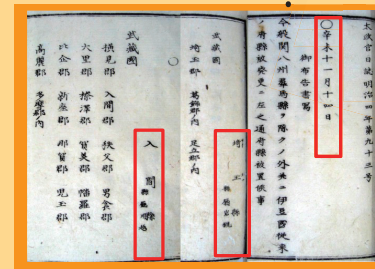 太政官日誌明治四年第九十三号
○辛未十一月十四日
御布告書写
今般関八州群馬県ヲ除クノ外並ニ伊豆国従来
ノ府県被廃更ニ左之通府県被置候事
埼玉県
県庁岩槻
武蔵国
埼玉郡 葛飾郡ノ内 足立郡ノ内
○
入間県
県庁川越
武蔵国
横見郡 入間郡 秩父郡 男衾郡
大里郡 榛沢郡 賀美郡 幡羅郡
比企郡 新座郡 那賀郡 児玉郡
高麗郡 多摩郡ノ内